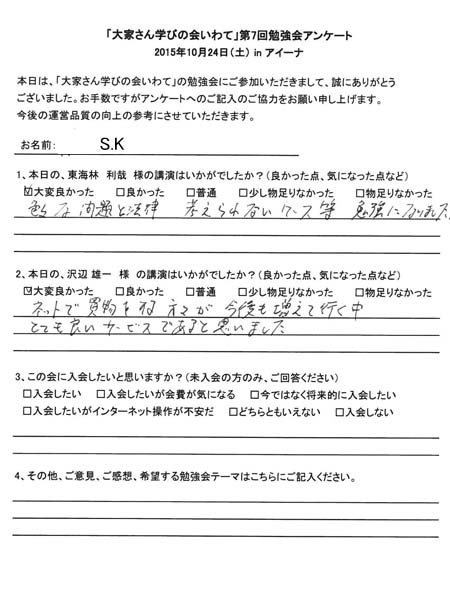 「大家さん学びの会いわて」第7回勉強会アンケート
2015年10月24日(土) in アイーナ
本日は、「大家さん学びの会いわて」の勉強会にご参加いただきまして、誠にありがとう
ございました。お手数ですがアンケートへのご記入のご協力をお願い申し上げます。
今後の運営品質の向上の参考にさせていただきます。
お名前: S.K
1、本日の、東海林 利哉 様の講演はいかがでしたか?(良かった点、気になった点など)
☑大変良かった □良かった □普通 □少し物足りなかった □物足りなかった
色々な問題と法律 考えられないケース等 勉強になりました
2、本日の、沢辺 雄一 様 の講演はいかがでしたか?(良かった点、気になった点など)
☑大変良かった □良かった □普通 □少し物足りなかった □物足りなかった
ネットで買物をする方が 今後も増えて行く中
とても良いサービスであると思いました
3、この会に入会したいと思いますか?(未入会の方のみ、ご回答ください)
□入会したい □入会したいが会費が気になる □今ではなく将来的に入会したい
□入会したいがインターネット操作が不安だ □どちらともいえない □入会しない
4、その他、ご意見、ご感想、希望する勉強会テーマはこちらにご記入ください。